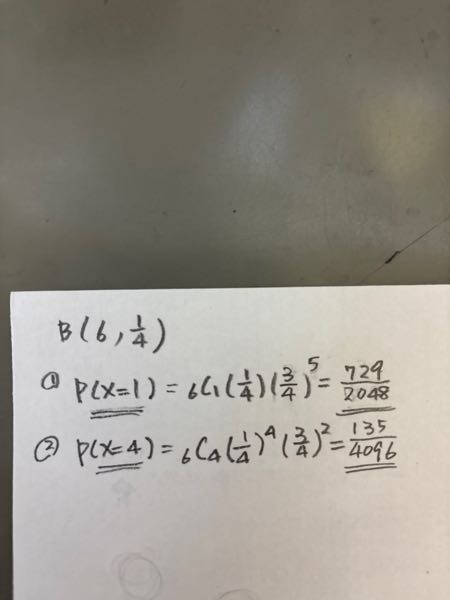 B(6, 1/4)
① P(X=1) = ₆C₁(1/4)(3/4)⁵ = 729/2048
② P(X=4) = ₆C₄(1/4)⁴(3/4)² = 135/4096